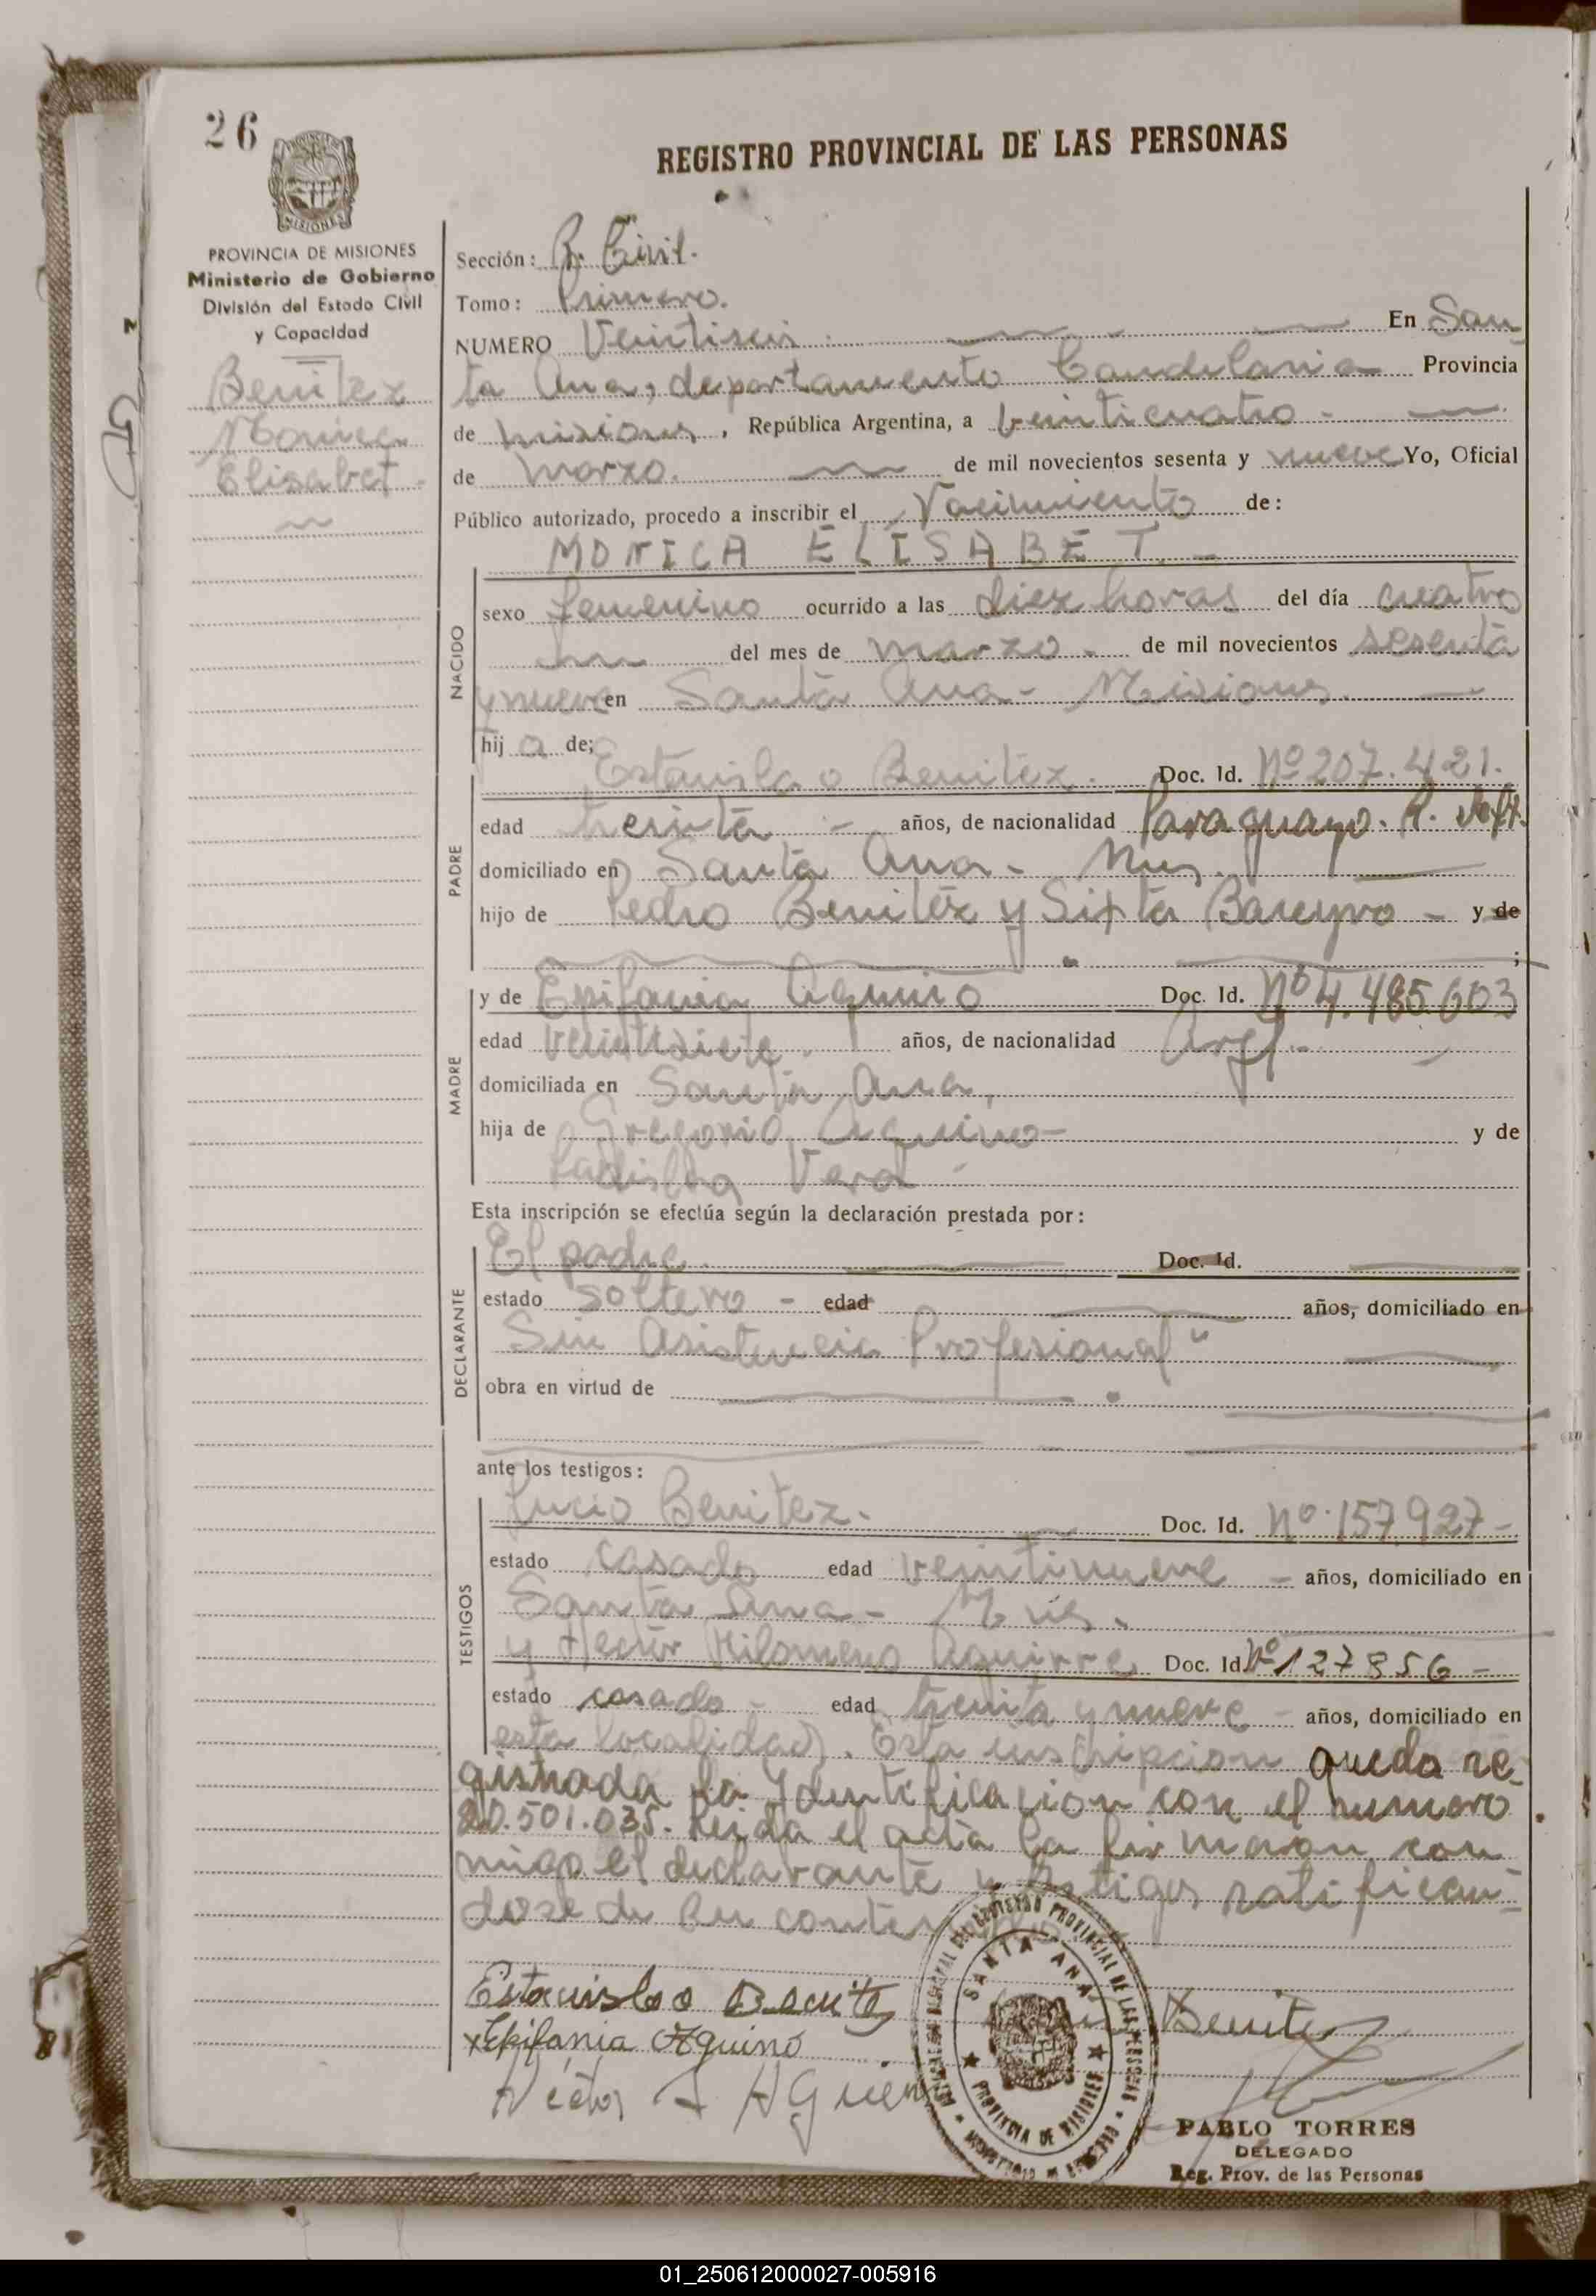 26
REGISTRO PROVINCIAL DE LAS PERSONAS
PROVINCIA DE MISIONES
Ministerio de Gobierno
División del Estado Civil
y Capacidad
Benitez
Monica
Elisabet.
Sección: R. Civil.
Tomo: Primero.
NUMERO Veintiseis En San
ta Ana, departamento Candelaria Provincia
de Misiones, República Argentina, a veinticuatro
de marzo. de mil novecientos sesenta y nueve Yo, Oficial
Público autorizado, procedo a inscribir el Nacimiento de:
MONICA ELISABET.
NACIDO
sexo femenino ocurrido a las diez horas del día cuatro
del mes de marzo de mil novecientos sesenta
y nueve en Santa Ana - Misiones.
hij a de;
PADRE
Estanislao Benitez. Doc. Id. Nº 207.421.
edad treinta años, de nacionalidad Paraguayo. R.
domiciliado en Santa Ana - Mnes.
hijo de Pedro Benitez y Sixta Bareyro - y de
;
MADRE
y de Epifania Aquino Doc. Id. Nº 4.485.603
edad veintisiete. años, de nacionalidad Arg.
domiciliada en Santa Ana,
hija de Gregorio Aquino - y de
Ladislaa Vera -
Esta inscripción se efectúa según la declaración prestada por:
DECLARANTE
El padre Doc. Id.
estado soltero - edad años, domiciliado en
Sin Asistencia Profesional"
obra en virtud de
ante los testigos:
TESTIGOS
Lucio Benitez. Doc. Id. Nº 157.927 -
estado casado edad veintinueve - años, domiciliado en
Santa Ana - Mis.
y Hector Filomeno Aguirre Doc. Id. Nº 127856 -
estado casado - edad treinta y nueve - años, domiciliado en
esta localidad. Esta inscripcion queda re-
gistrada la Identificacion con el numero
20.501.035. Leida el acta la firmaron con
migo el declarante y testigos ratifican-
dose de su contenido
Estanislao Benitez
x Epifania Aquino
Benitez
Hector F Aguirre
SANTA ANA
PROVINCIA DE MISIONES
REGISTRO PROVINCIAL DE LAS PERSONAS
PABLO TORRES
DELEGADO
Reg. Prov. de las Personas
01_250612000027-005916